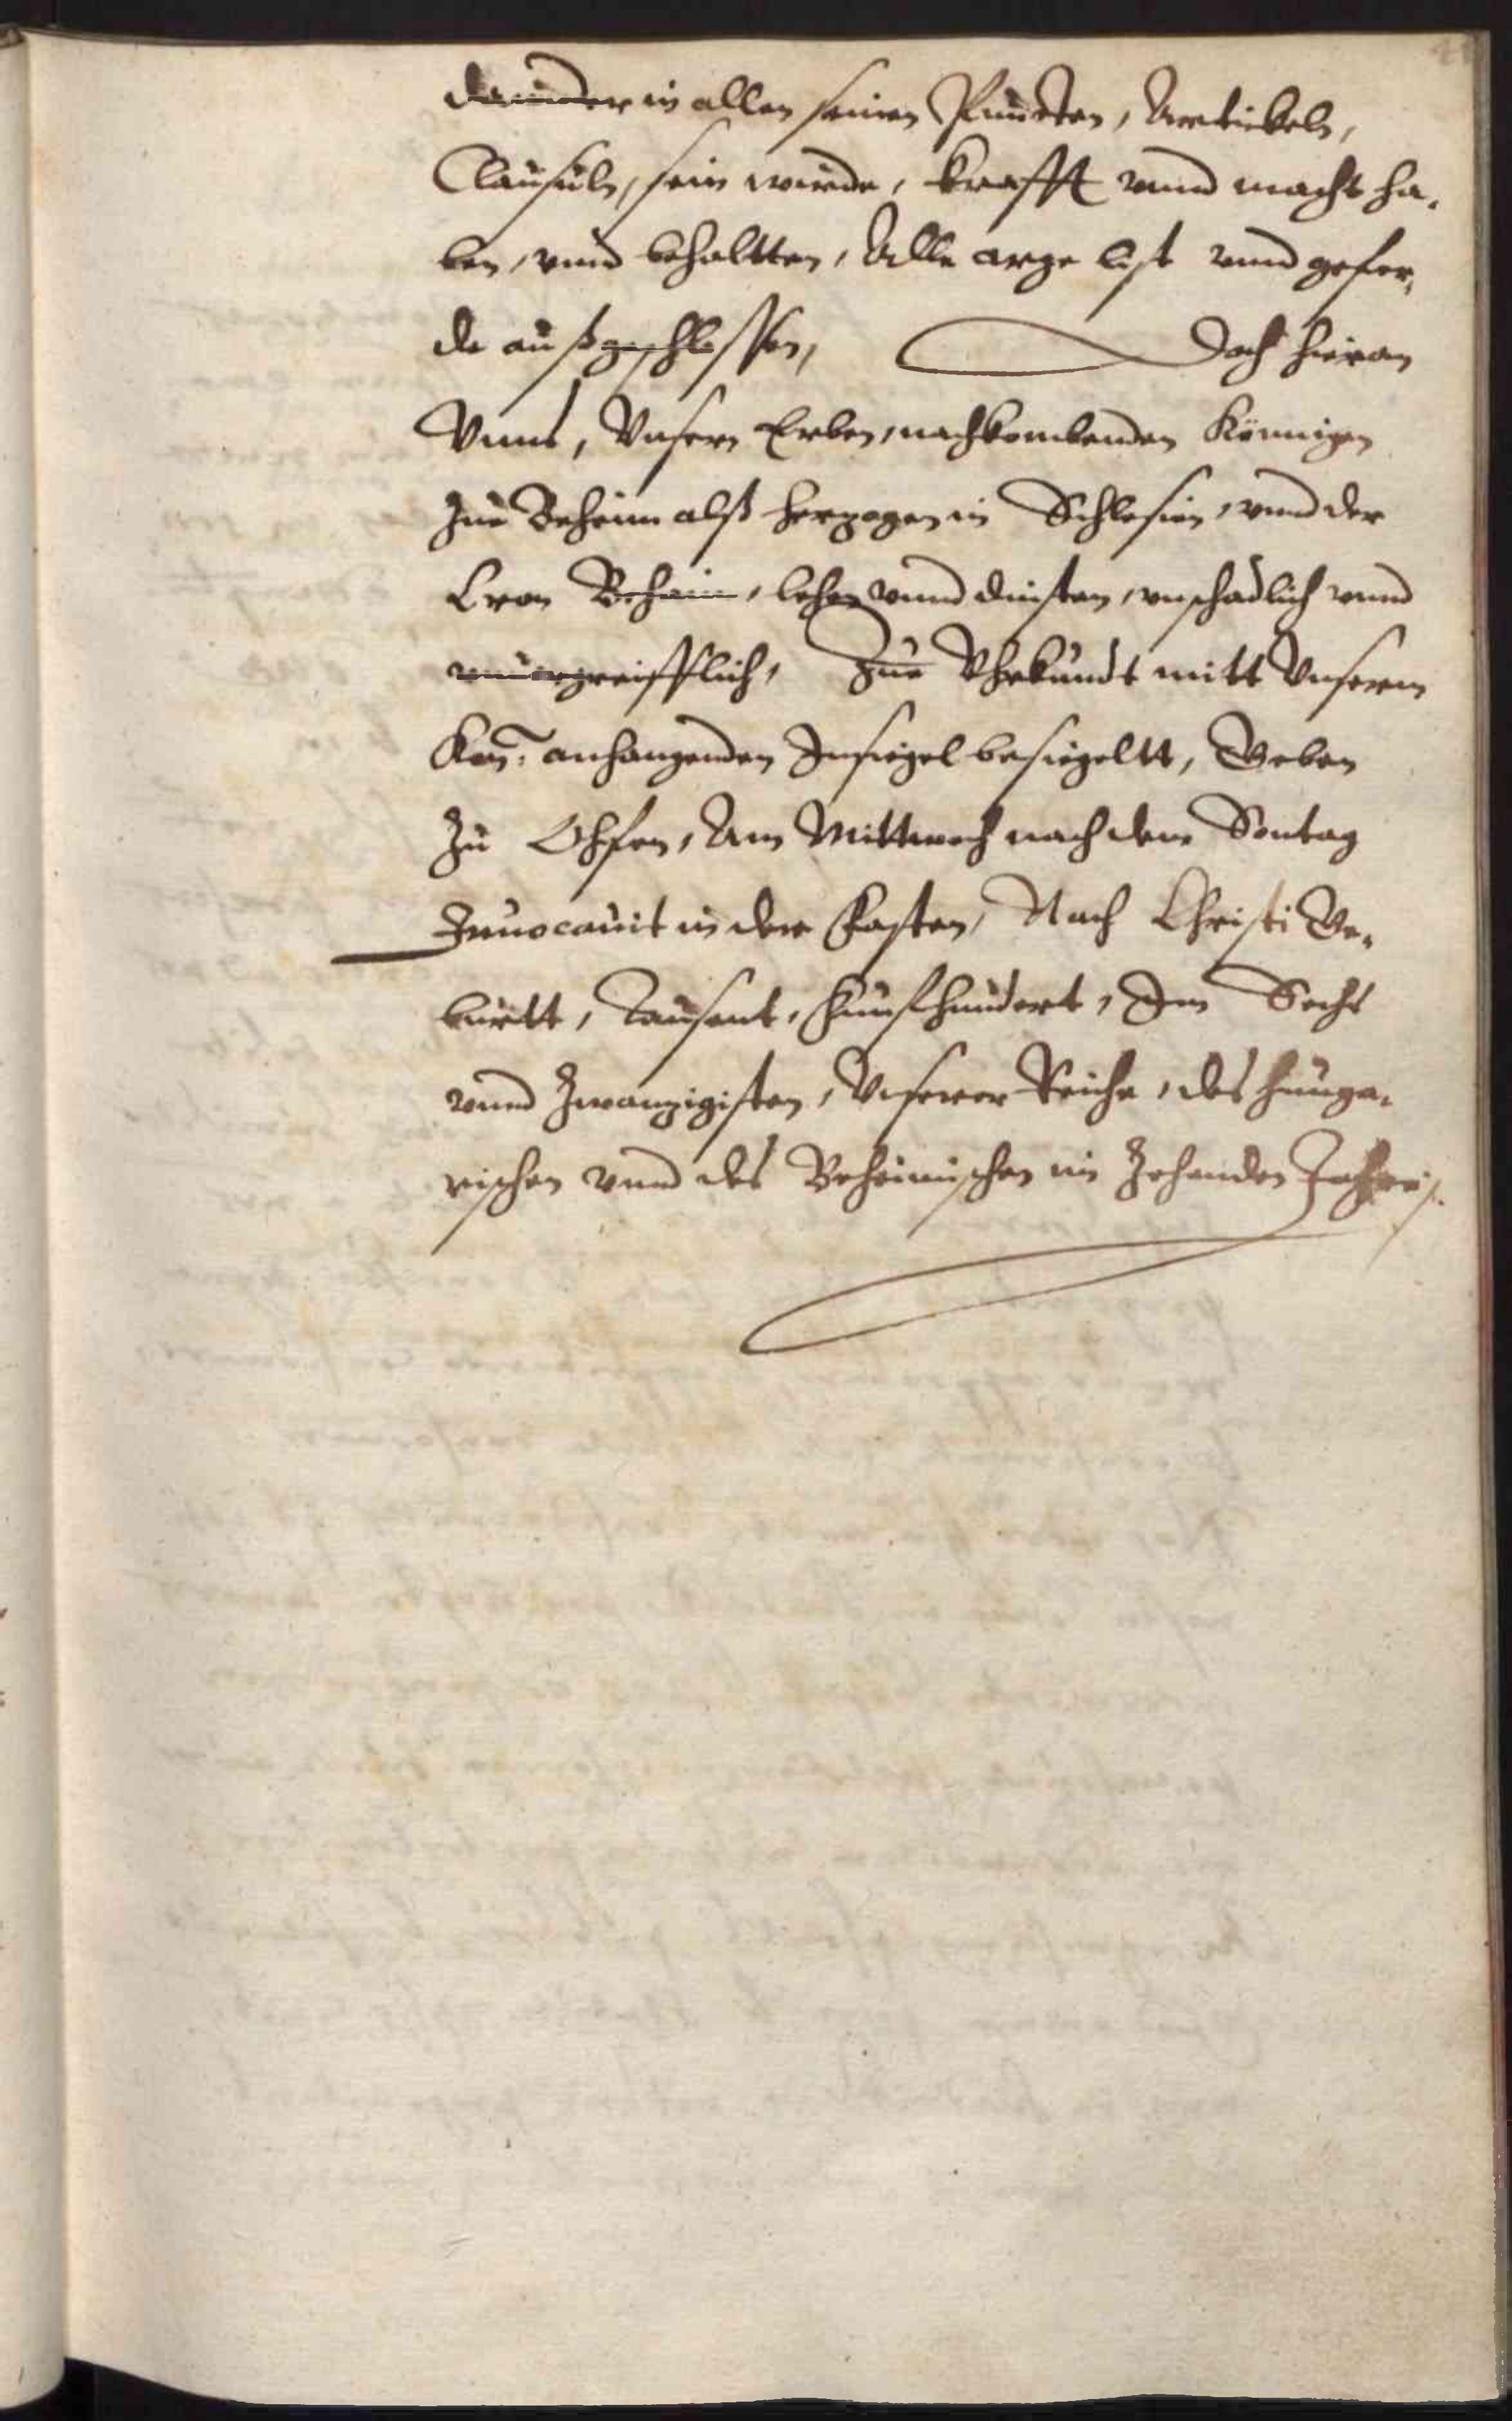 darinder in allen seinen Puncten, Artickeln,
Clausuln, sein wurde, krafft vnnd macht ha,
ben, vnnd behaltten, Alle arge list vnnd gefer,
de außgeschlossen, Doch hieran
Vnns, Vnsern Erben, nachkombenden Königen
Zue Beheim alß Herzogen in Schlesien, vnnd der
Cron Behaim, lehen vnnd dinsten, vnschadlich vnnd
vnuorgreifflich, Zue Vhrkundt mitt Vnserm
Kön: anhangenden Insiegel besiegeltt, Geben
Zu Ohfen, Am Mittwoch nach dem Sontag
Inuocauit in der Fasten, Nach Christi Ge,
burtt, Tausent, Funfhundert, Im Sechs
vnnd Zwanzigisten, Vnserer Reiche, des Hunga,
rischen vnnd des Beheimischen im Zehenden Jahre.